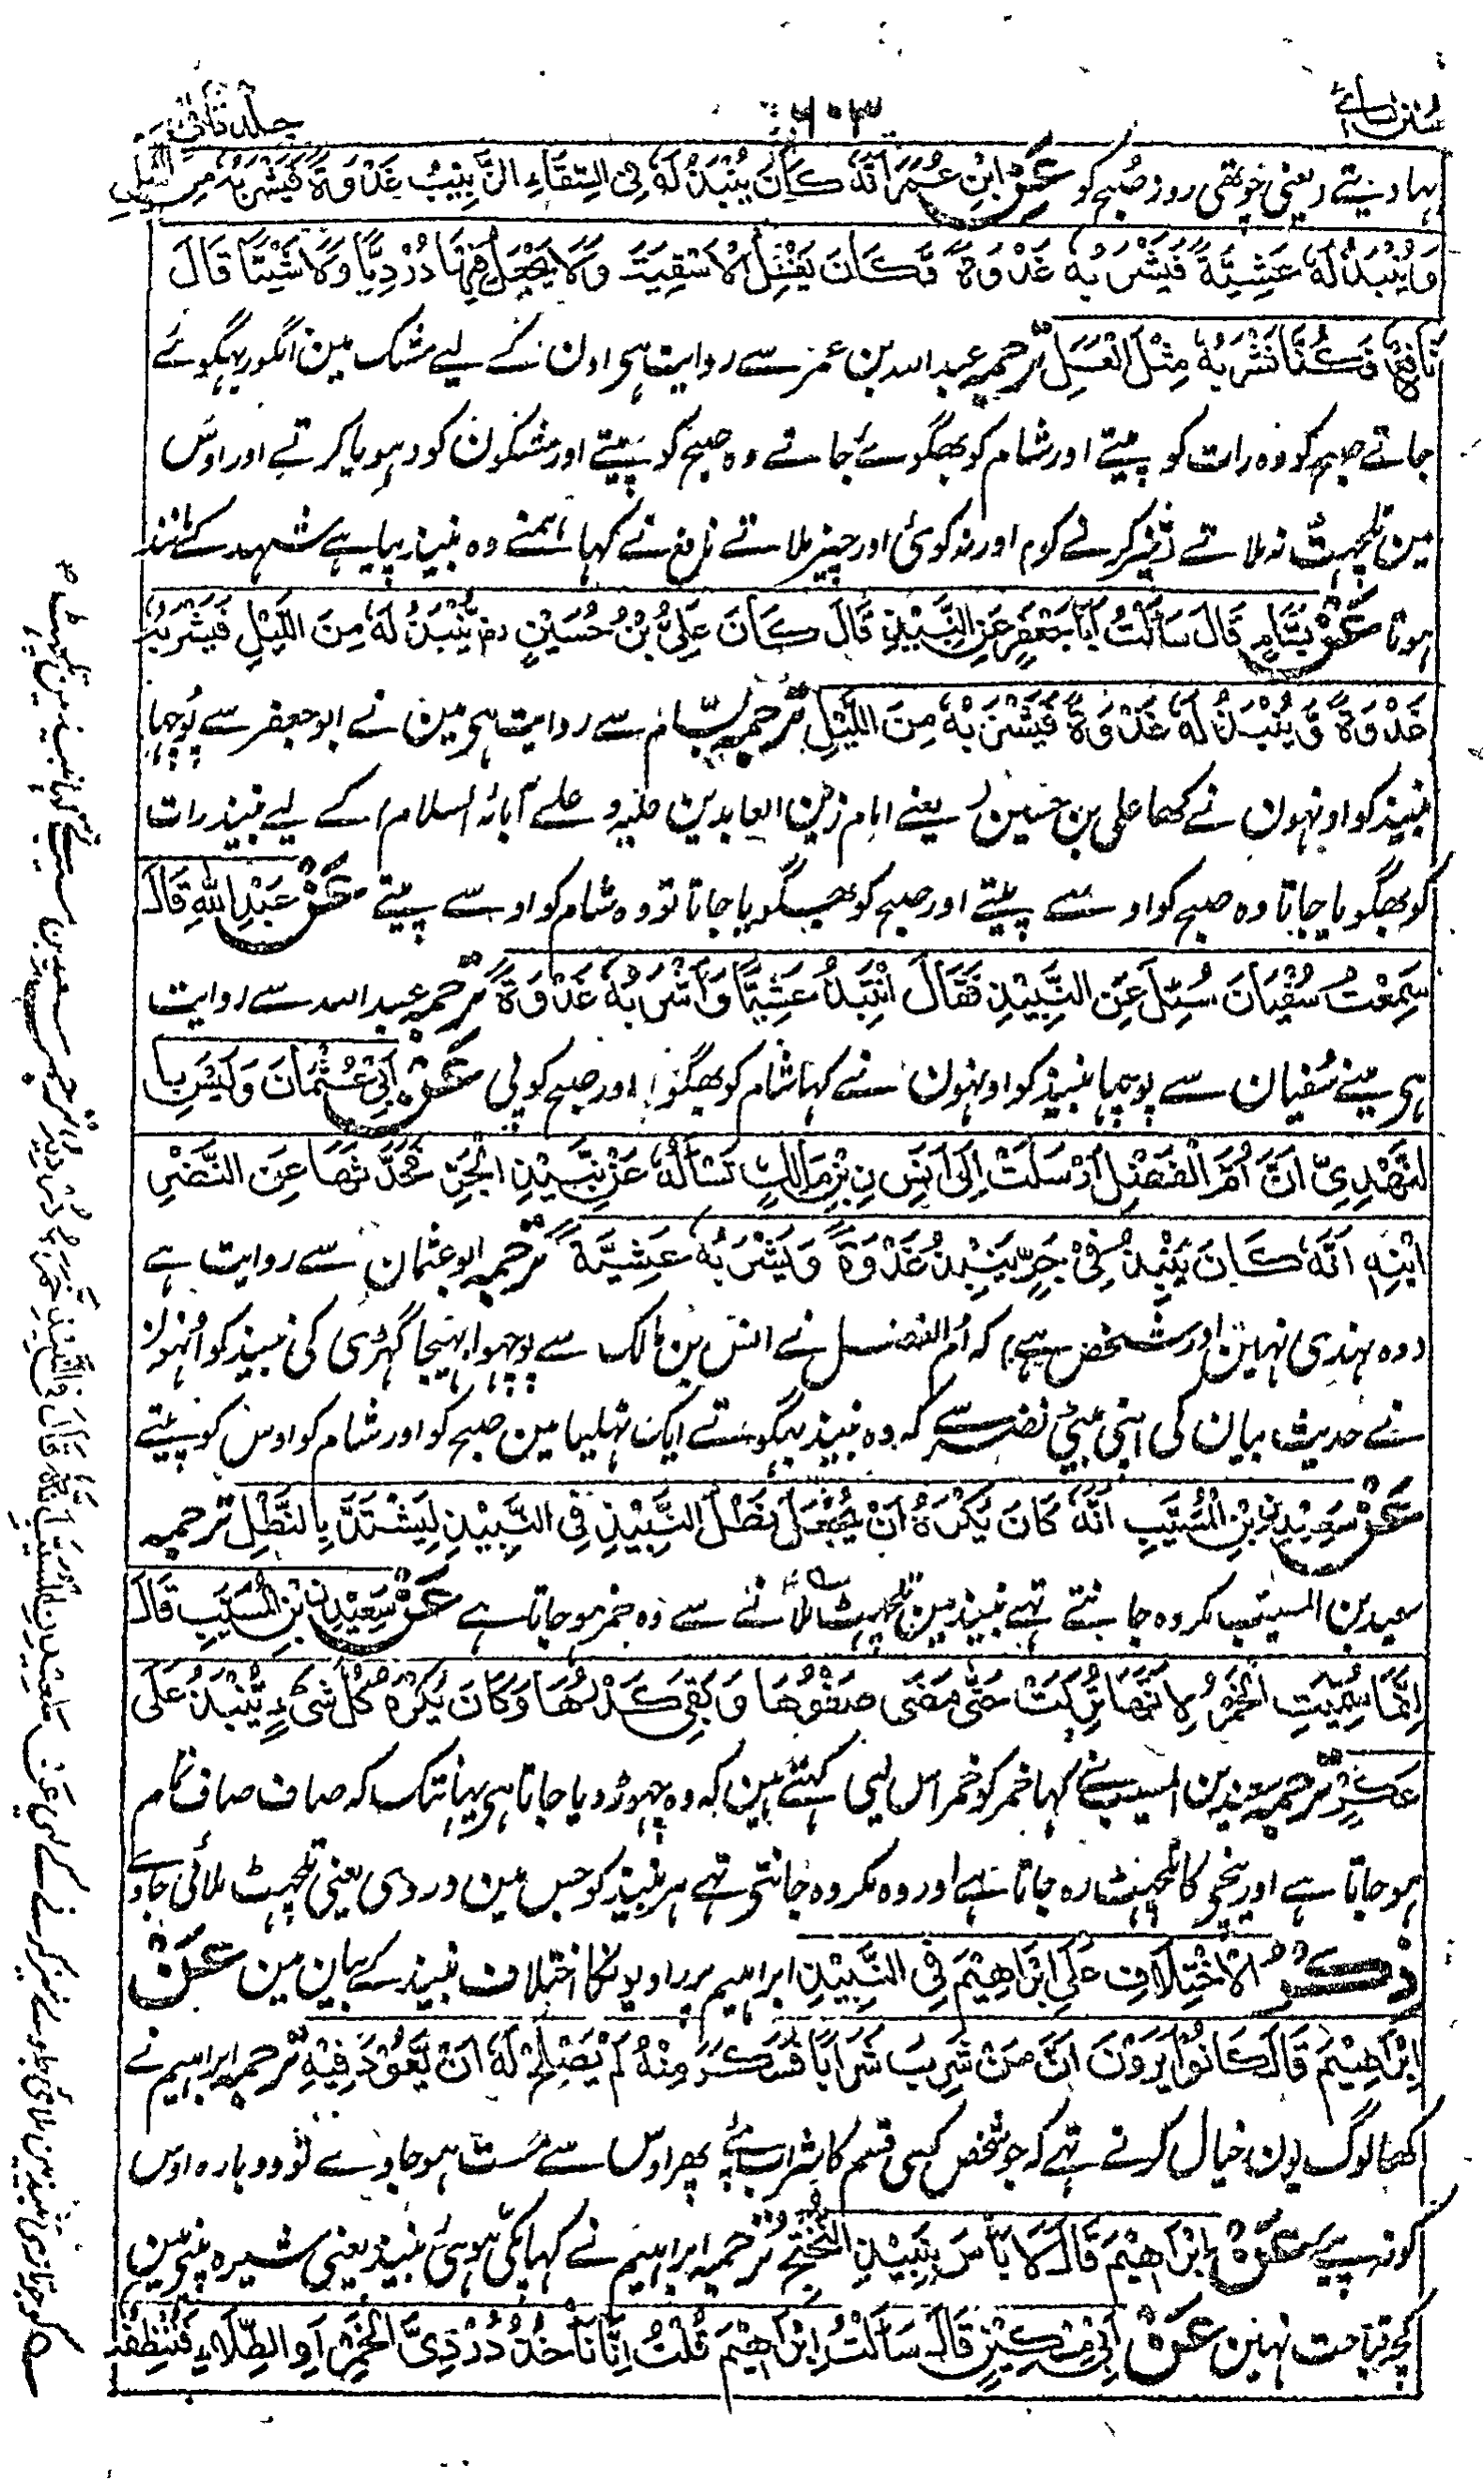 سنن نسائی ۶۰۳ جلد ثانی
بہا دیتے (یعنی چوتھی روز صبح کو عَنِ ابْنِ عُمَرَ اَنَّهٗ كَانَ يُنْبَذُ لَهٗ فِى السِّقَاءِ الزَّبِيْبُ غَدْوَةً فَيَشْرَبُهٗ مِنَ اللَّيْلِ
وَيُنْبَذُ لَهٗ عَشِيَّةً فَيَشْرَبُهٗ غَدْوَةً وَّكَانَ يَغْسِلُ الْاَسْقِيَةَ وَلَا يَجْعَلُ فِيْهَا دُرْدِيًّا وَّلَا شَيْئًا قَالَ
نَافِعٌ فَكُنَّا نَشْرَبُهٗ مِثْلَ الْعَسَلِ ترجمہ عبداللہ بن عمر سے روایت ہی اون کے لیے مشک مین انگور بہگوئے
جاتے صبح کو وہ رات کو پیتے اور شام کو بھگوئے جاتے وہ صبح کو پیتے اور مشکون کو دہویا کرتے اور اوس
مین تلچہٹ نہ ملاتے (تیز کرنے کو) اور نہ کوئی اور چیز ملاتے نافع نے کہا ہمنے وہ نبیذ پیا ہے شہد کے مانند
ہوتا عَنْ بَسَّامٍ قَالَ سَاَلْتُ اَبَا جَعْفَرٍ عَنِ النَّبِيْذِ قَالَ كَانَ عَلِيُّ بْنُ حُسَيْنٍ رض يُنْبَذُ لَهٗ مِنَ اللَّيْلِ فَيَشْرَبُهٗ
غَدْوَةً وَّيُنْبَذُ لَهٗ غَدْوَةً فَيَشْرَبُهٗ مِنَ اللَّيْلِ ترجمہ بسام سے روایت ہی مین نے ابو جعفر سے پوچہا
نبیذ کو اونہون نے کہا علی بن حسین (یعنے امام زین العابدین علیہ و علے آبائہ السلام) کے لیے نبیذ رات
کو بھگویا جاتا وہ صبح کو اوسے پیتے اور صبح کو بھگویا جاتا تو وہ شام کو اوسے پیتے عَنْ عَبْدِ اللّٰهِ قَالَ
سَمِعْتُ سُفْيَانَ سُئِلَ عَنِ النَّبِيْذِ فَقَالَ انْتَبِذْ عَشِيًّا وَّاشْرَبْهُ غَدْوَةً ترجمہ عبداللہ سے روایت
ہی مینے سفیان سے پوچہا نبیذ کو اونہون نے کہا شام کو بھگو اور صبح کو پی عَنْ اَبِيْ عُثْمَانَ وَلَيْسَ بِا
لنَّهْدِيِّ اَنَّ اُمَّ الْفَضْلِ اَرْسَلَتْ اِلٰى اَنَسِ نِ بْنِ مَالِكٍ تَسْاَلُهٗ عَنْ نَّبِيْذِ الْجَرِّ فَحَدَّثَهَا عَنِ النَّضْرِ
ابْنِهٖ اَنَّهٗ كَانَ يَنْبِذُ فِيْ جَرٍّ يَنْبِذُ غَدْوَةً وَيَشْرَبُهٗ عَشِيَّةً ترجمہ ابو عثمان سے روایت ہے
(وہ نہدی نہین اور شخص ہے) کہ ام الفضل نے انس بن مالک سے پوچہوا بہیجا گہڑی کی نبیذ کو انہون
نے حدیث بیان کی اپنی بیٹے نضر سے کہ وہ نبیذ بہگوتے ایک ٹہلیا مین صبح کو اور شام کو اوس کو پیتے
عَنْ سَعِيْدِ نِ بْنِ الْمُسَيَّبِ اَنَّهٗ كَانَ يَكْرَهُ اَنْ يُّجْعَلَ نَطْلُ النَّبِيْذِ فِى النَّبِيْذِ لِيَشْتَدَّ بِالنَّطْلِ ترجمہ
سعید بن المسیب مکروہ جانتے تہے نبیذ مین تلچہٹ ملانے سے وہ خمر ہو جاتا ہے عَنْ سَعِيْدِ نِ بْنِ الْمُسَيَّبِ قَالَ
اِنَّمَا سُمِّيَتِ الْخَمْرُ لِاَنَّهَا تُرِكَتْ حَتّٰى مَضٰى صَفْوُهَا وَبَقِيَ كَدْرُهَا وَكَانَ يَكْرَهُ كُلَّ شَيْءٍ يُّنْبَذُ عَلٰى
عَكَرٍ ترجمہ سعید بن المسیب نے کہا خمر کو خمر اس لیی کہتے ہین کہ وہ چہوڑ دیا جاتا ہی یہانتک کہ صاف صاف تمام
ہو جاتا ہے اور نیچی کا تلچہٹ رہ جاتا ہے اور وہ مکروہ جانتی تہے ہر نبیذ کو جس مین دردی یعنی تلچہٹ ملائی جاوے
ذِكْرُ الْاِخْتِلَافِ عَلٰى اِبْرَاهِيْمَ فِى النَّبِيْذِ ابراہیم پر راویونکا اختلاف نبیذ کے بیان مین عَنْ
اِبْرَاهِيْمَ قَالَ كَانُوْا يَرَوْنَ اَنَّ مَنْ شَرِبَ شَرَابًا فَسَكِرَ مِنْهُ لَمْ يَصْلُحْ لَهٗ اَنْ يَّعُوْدَ فِيْهِ ترجمہ ابراہیم نے
کہا لوگ یون خیال کرتے تہے کہ جو شخص کسی قسم کا شراب پئے پھر اوس سے مست ہو جاوے تو دوبارہ اوس
کو نہ پیے عَنْ اِبْرَاهِيْمَ قَالَ لَا بَأْسَ بِنَبِيْذِ الْبُخْتُجِ ترجمہ ابراہیم نے کہا پکی ہوئی نبیذ یعنی شیرہ پینی مین
کچہ قباحت نہین عَنْ اَبِيْ مِسْكِيْنٍ قَالَ سَاَلْتُ اِبْرَاهِيْمَ قُلْتُ اِنَّا نَأْخُذُ دُرْدِيَّ الْخَمْرِ اَوِ الطِّلَاءِ فَنُنَظِّفُهٗ